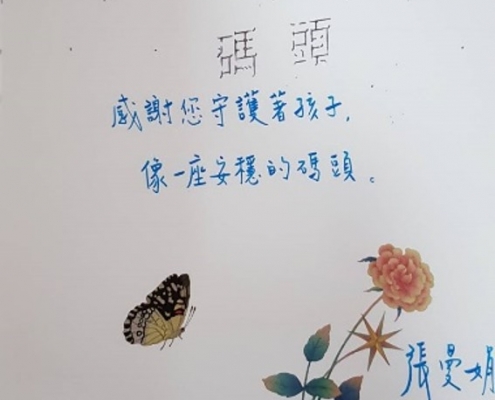 碼頭
感謝您守護著孩子,
像一座安穩的碼頭。
張曼娟